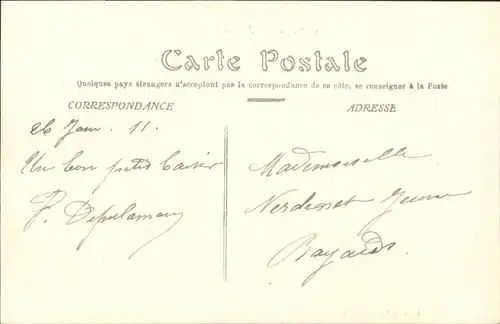 Carte Postale
Quelques pays étrangers n'acceptant pas la correspondance de ce côté, se renseigner à la Poste
CORRESPONDANCE
ADRESSE
26 Janv. 11.
Un bon petit baiser
P.
Mademoiselle
Jeune
Bayards